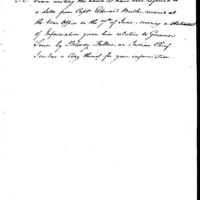 P.S. Since writing the above I have been referred to
a letter from Capt. Edward Butler, received at
the War Office on the 7th of June, covering a statement
of Information given him relative to Governor
Sevier by Bloody Fellow, an Indian Chief
I enclose a Copy thereof for your information.